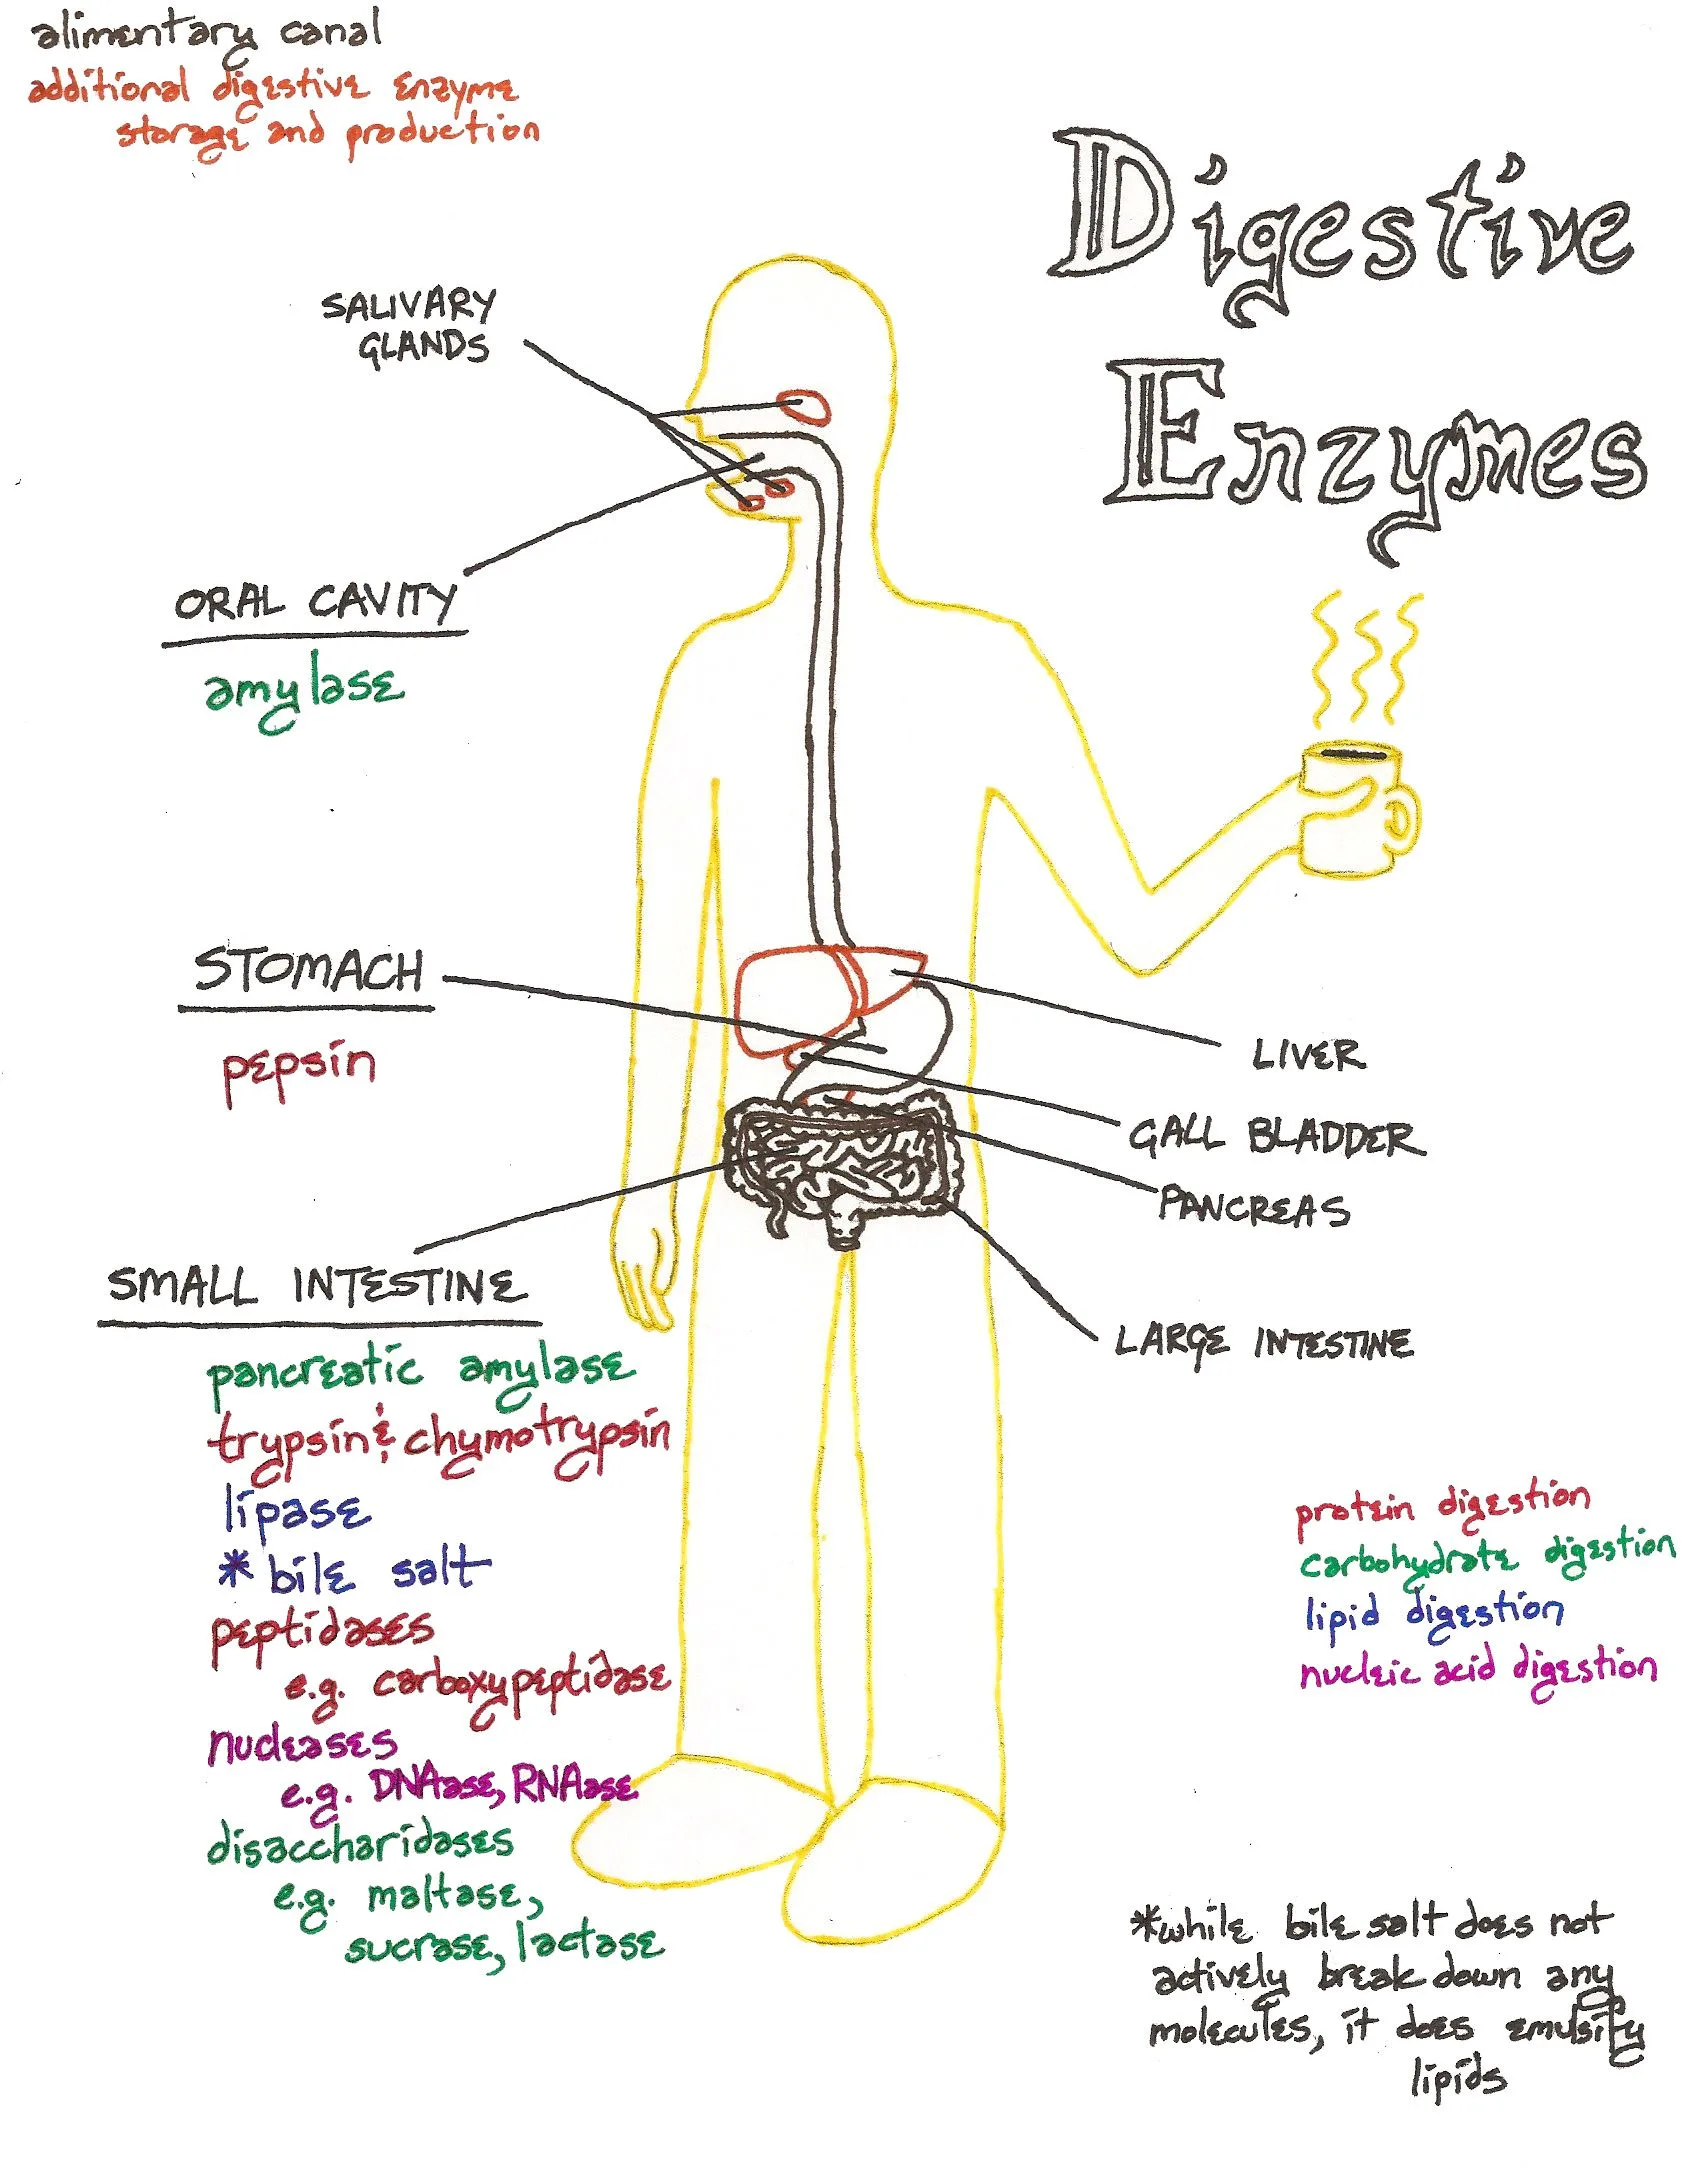 alimentary canal
additional digestive enzyme
storage and production
Digestive
Enzymes
SALIVARY
GLANDS
ORAL CAVITY
amylase
STOMACH
pepsin
LIVER
GALL BLADDER
PANCREAS
SMALL INTESTINE
LARGE INTESTINE
pancreatic amylase
trypsin & chymotrypsin
lipase
* bile salt
peptidases
e.g. carboxypeptidase
nucleases
e.g. DNAase, RNAase
disaccharidases
e.g. maltase,
sucrase, lactase
protein digestion
carbohydrate digestion
lipid digestion
nucleic acid digestion
*while bile salt does not
actively break down any
molecules, it does emulsify
lipids